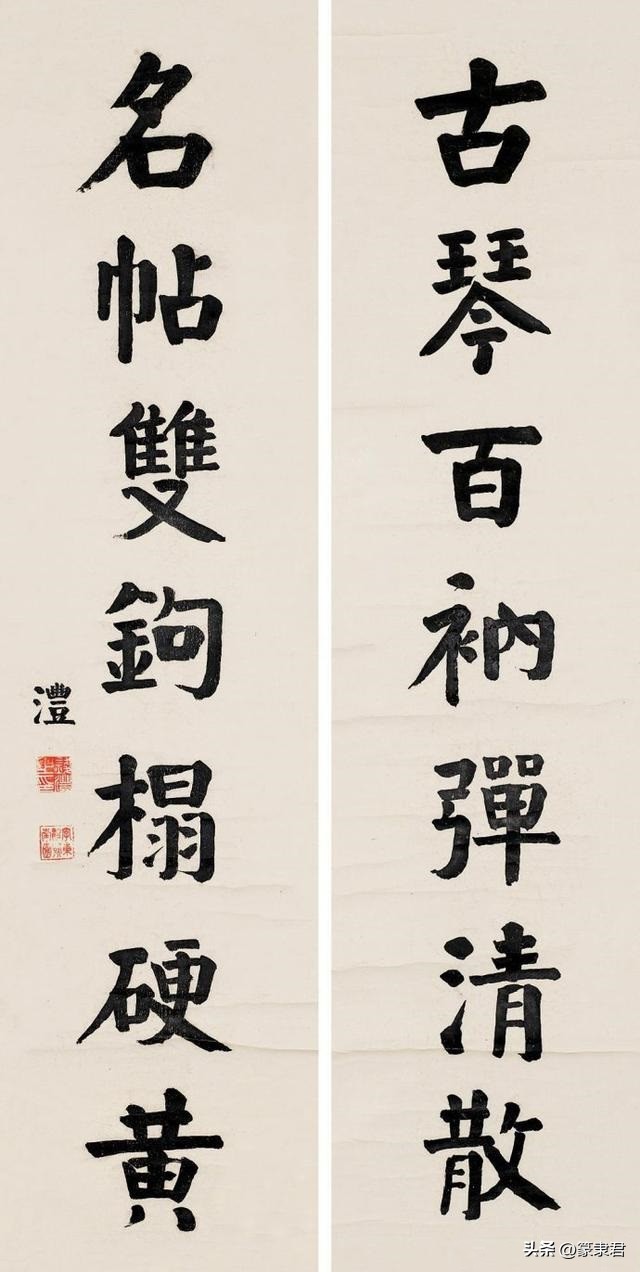 古琴百衲彈清散
名帖雙鉤榻硬黄
澧
头条 @篆隶君